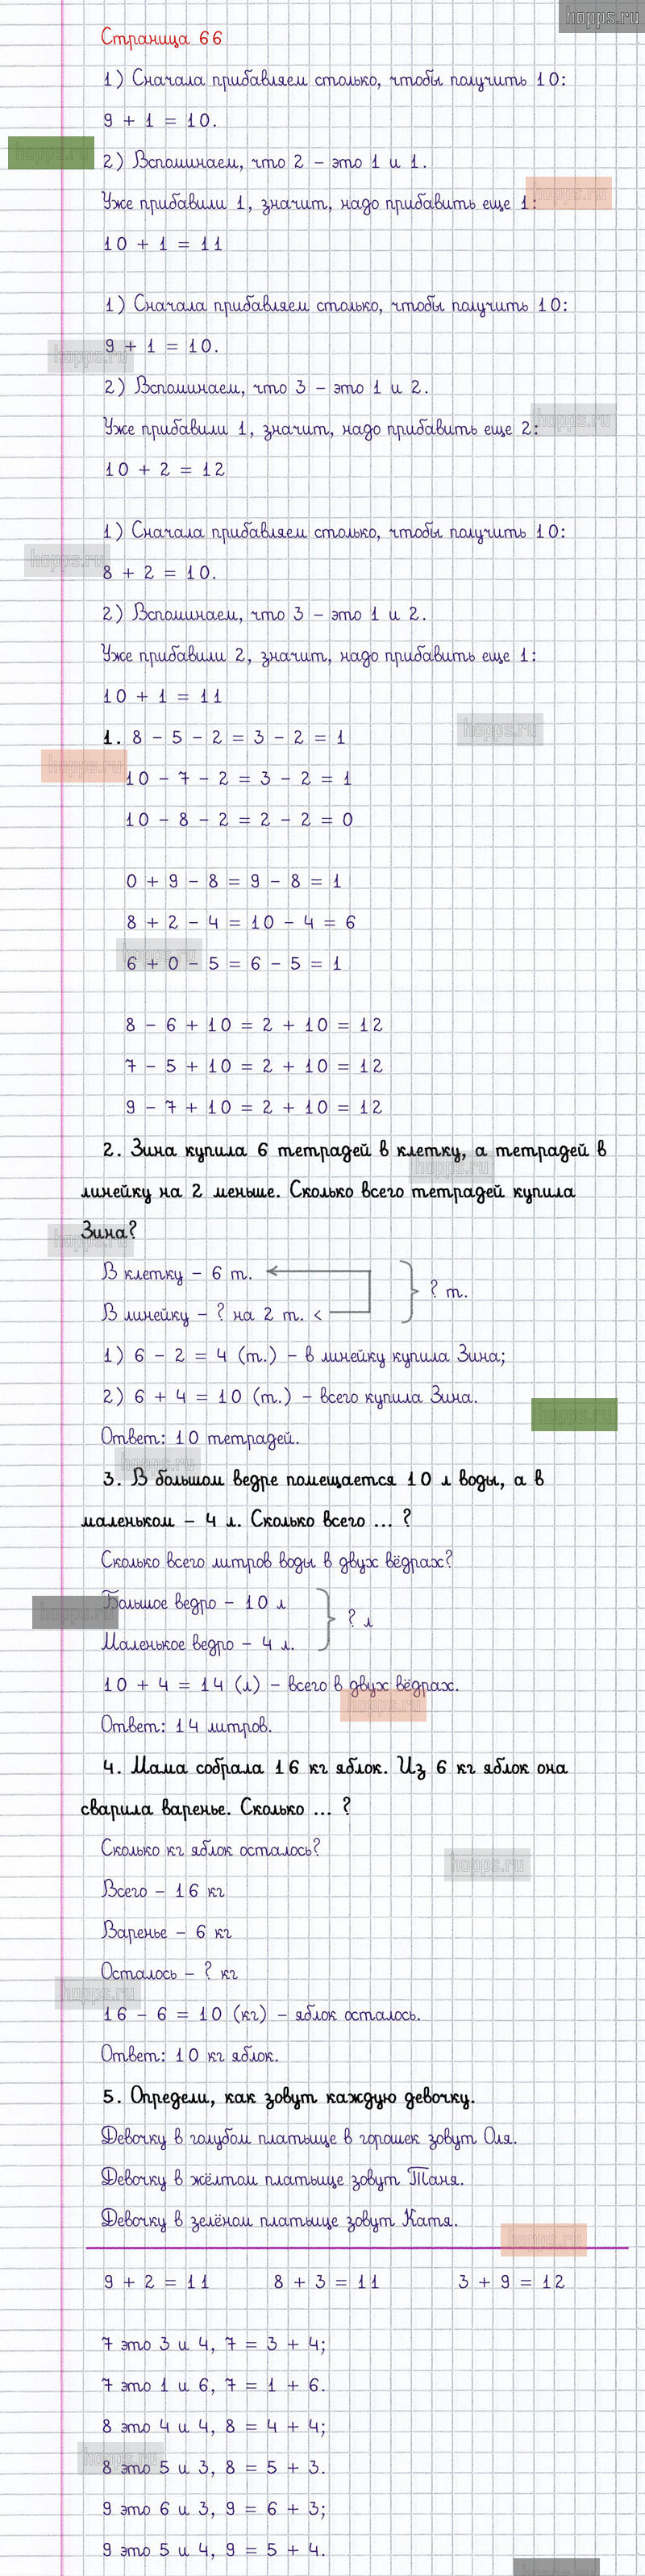 hopps.ru
Страница 66
1) Сначала прибавляем столько, чтобы получить 10:
9 + 1 = 10.
hopps.ru
2) Вспоминаем, что 2 – это 1 и 1.
hopps.ru
Уже прибавили 1, значит, надо прибавить еще 1:
10 + 1 = 11
1) Сначала прибавляем столько, чтобы получить 10:
9 + 1 = 10.
hopps.ru
2) Вспоминаем, что 3 – это 1 и 2.
hopps.ru
Уже прибавили 1, значит, надо прибавить еще 2:
10 + 2 = 12
1) Сначала прибавляем столько, чтобы получить 10:
hopps.ru
8 + 2 = 10.
2) Вспоминаем, что 3 – это 1 и 2.
Уже прибавили 2, значит, надо прибавить еще 1:
10 + 1 = 11
hopps.ru
1. 8 – 5 – 2 = 3 – 2 = 1
hopps.ru
10 – 7 – 2 = 3 – 2 = 1
10 – 8 – 2 = 2 – 2 = 0
0 + 9 – 8 = 9 – 8 = 1
8 + 2 – 4 = 10 – 4 = 6
hopps.ru
6 + 0 – 5 = 6 – 5 = 1
8 – 6 + 10 = 2 + 10 = 12
7 – 5 + 10 = 2 + 10 = 12
9 – 7 + 10 = 2 + 10 = 12
2. Зина купила 6 тетрадей в клетку, а тетрадей в
hopps.ru
линейку на 2 меньше. Сколько всего тетрадей купила
Зина?
hopps.ru
В клетку – 6 т.
? т.
В линейку – ? на 2 т. <
1) 6 – 2 = 4 (т.) – в линейку купила Зина;
2) 6 + 4 = 10 (т.) – всего купила Зина.
hopps.ru
Ответ: 10 тетрадей.
hopps.ru
3. В большом ведре помещается 10 л воды, а в
маленьком – 4 л. Сколько всего ... ?
Сколько всего литров воды в двух вёдрах?
hopps.ru
Большое ведро – 10 л
? л
Маленькое ведро – 4 л.
10 + 4 = 14 (л) – всего в двух вёдрах.
hopps.ru
Ответ: 14 литров.
4. Мама собрала 16 кг яблок. Из 6 кг яблок она
сварила варенье. Сколько ... ?
Сколько кг яблок осталось?
hopps.ru
Всего – 16 кг
Варенье – 6 кг
Осталось – ? кг
hopps.ru
16 – 6 = 10 (кг) – яблок осталось.
Ответ: 10 кг яблок.
5. Определи, как зовут каждую девочку.
Девочку в голубом платьице в горошек зовут Оля.
Девочку в жёлтом платьице зовут Таня.
Девочку в зелёном платьице зовут Катя.
hopps.ru
9 + 2 = 11 8 + 3 = 11 3 + 9 = 12
7 это 3 и 4, 7 = 3 + 4;
7 это 1 и 6, 7 = 1 + 6.
8 это 4 и 4, 8 = 4 + 4;
hopps.ru
8 это 5 и 3, 8 = 5 + 3.
9 это 6 и 3, 9 = 6 + 3;
9 это 5 и 4, 9 = 5 + 4.